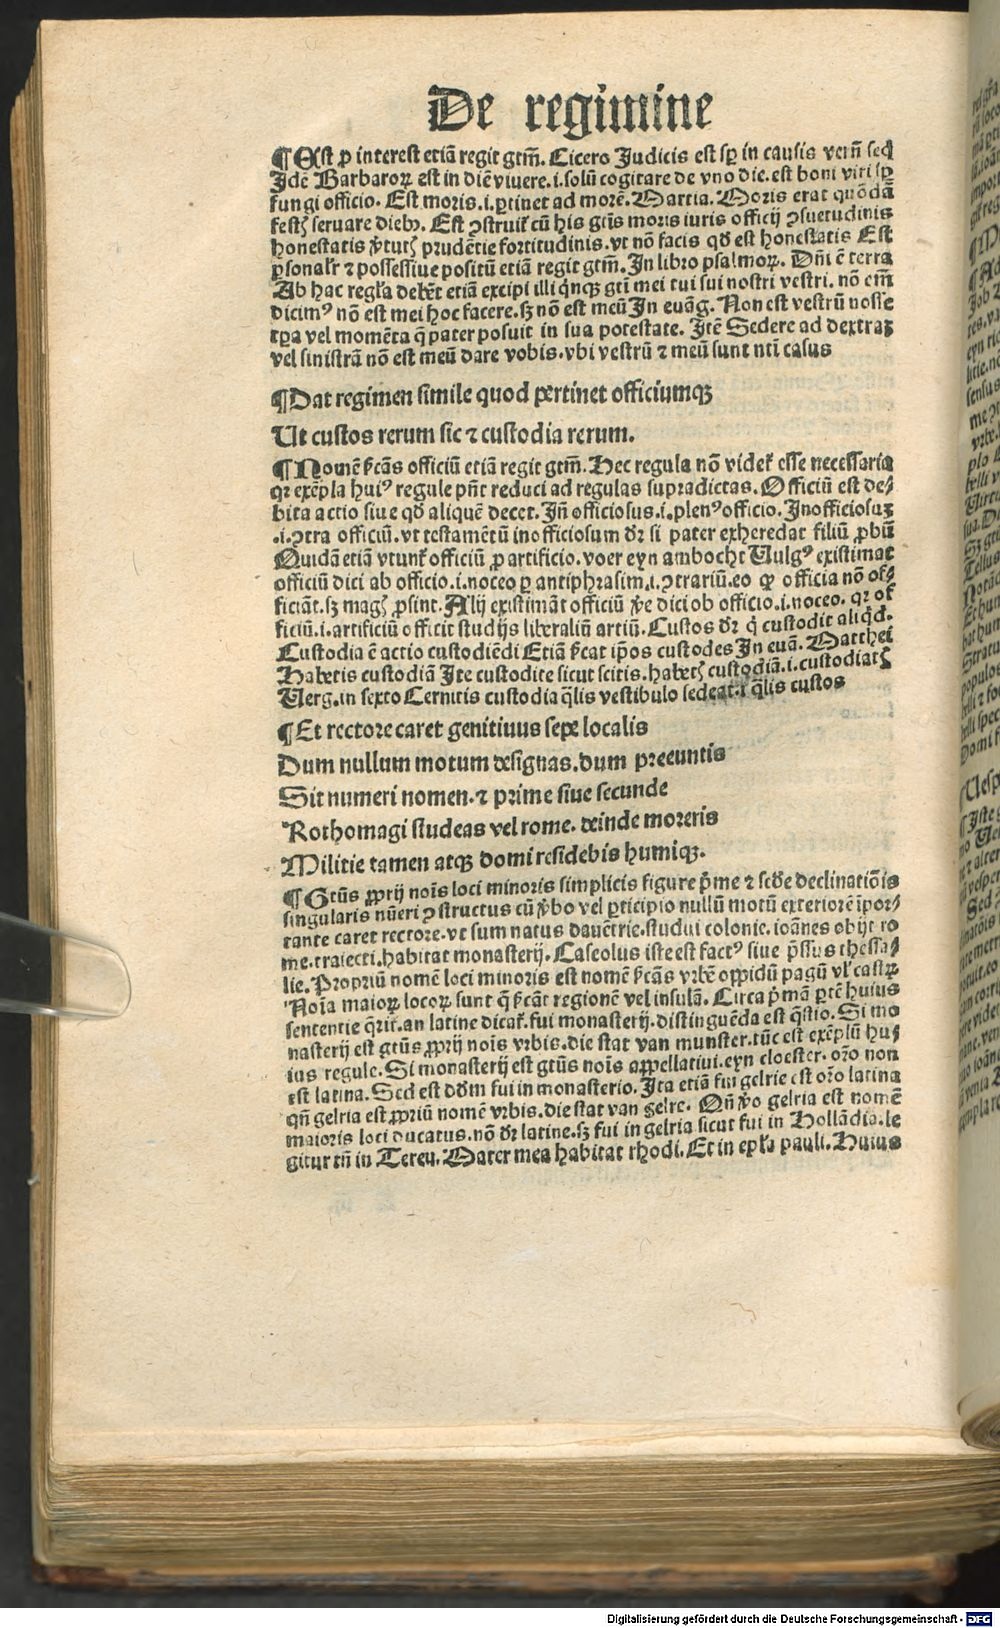 De regimine
¶Est ꝓ interest etiã regit gtm̃. Cicero Judicis est sꝑ in causis verũ seq̄
Jdē Barbaroꝝ est in diē vivere.i.solũ cogitare de vno die.est boni viri sꝑ
fungi officio. Est moris.i.ꝑtinet ad morē.Martia. Moris erat quõdã
festꝭ seruare diebꝰ. Est ꝯstruiť cũ his gtũs moris iuris officij ꝯsuetudinis
honestatis v̾tutꝭ prudẽtie fortitudinis.vt nõ facis qď est honestatis Est
ꝑsonalr̃ ⁊ possessiue positũ etiã regit gtm̃. Jn libro psalmoꝝ. Dñi ē terra
Ab hac regl̃a debẽt etiã excipi illi q̃nqꝫ gtĩ mei tui sui nostri vestri. nõ em̃
dicimꝰ nõ est mei hoc facere.sꝫ nõ est meũ Jn euãg. Non est vestrũ nosse
tꝑa vel momẽta q̃ pater posuit in sua potestate. Jtē Sedere ad dextraꝫ
vel sinistrã nõ est meũ dare vobis.vbi vestrũ ⁊ meũ sunt ntĩ casus
¶Dat regimen simile quod pertinet officiumqꝫ
Ut custos rerum sic ⁊ custodia rerum.
¶Nomẽ s̃cãs officiũ etiã regit gtm̃. Hec regula nõ videť esse necessaria
qꝛ exẽpla huiꝰ regule pñt reduci ad regulas supradictas. Officiũ est de⸗
bita actio siue qď aliquẽ decet. Jñ officiosus.i.plenꝰ officio. Jnofficiosuꝫ
.i.ꝯtra officiũ.vt testamẽtũ inofficiosum dr̃ si pater exheredat filiũ ꝓbũ
Quidã etiã vtunť officiũ ꝓ artificio.voer eyn ambocht Uulgꝰ existimat
officiũ dici ab officio.i.noceo ꝑ antiphrasim.i.ꝯtrariũ.eo ꝙ officia nõ of⸗
ficiãt.sꝫ magꝭ ꝓsint. Alij existimãt officiũ v̾e dici ob officio.i.noceo. qꝛ of
ficiũ.i.artificiũ officit studijs liberaliũ artiũ. Custos dr̃ q̇ custodit aliqď.
Custodia ē actio custodiẽdi Etiã s̃cat ip̃os custodes Jn euã. Matthei
Habetis custodiã Jte custodite sicut scitis.habetꝭ custodiã.i.custodiatꝭ
Uerg.in sexto Cernitis custodia q̃lis vestibulo sedeat.i q̃lis custos
¶Et rectore caret genitiuus sepe localis
Dum nullum motum designas.dum preeuntis
Sit numeri nomen.⁊ prime siue secunde
Rothomagi studeas vel rome.deinde moreris
Militie tamen atqꝫ domi residebis humiqꝫ.
¶Gtũs ꝓprij noĩs loci minoris simplicis figure p̃me ⁊ scďe declinatiõis
singularis nũeri ꝯstructus cũ v̾bo vel ꝑticipio nullũ motũ exteriorẽ ĩpor⸗
tante caret rectore.vt sum natus dauẽtrie.studui colonie.ioãnes obijt ro
me.traiecti.habitat monasterij. Caseolus iste est factꝰ siue p̃ssus thessa⸗
lie. Propriũ nomẽ loci minoris est nomẽ s̃cãs vrbẽ oppidũ pagũ vľ castꝝ
Noĩa maioꝝ locoꝝ sunt q̃ s̃cãt regionẽ vel insulã. Circa p̃mã ꝑtẽ huius
sententie q̃riť.an latine dicať.fui monasterij.distinguẽda est q̃stio. Si mo
nasterij est gtũs ꝓprij noĩs vrbis.die stat van munster.tũc est exẽplũ hu⸗
ius regule. Si monasterij est gtũs noĩs appellatiui.eyn cloester. oř̃o non
est latina. Sed est dõm fui in monasterio. Jta etiã fui gelrie est oř̃o latina
qñ gelria est ꝓpriũ nomẽ vrbis.die stat van gelre. Qñ v̾o gelria est nomẽ
maioris loci ducatus.nõ dr̃ latine.sꝫ fui in gelria sicut fui in Hollãdia.le
gitur tñ in Tereu. Mater mea habitat rhodi. Et in epľa pauli. Huius
Digitalisierung gefördert durch die Deutsche Forschungsgemeinschaft - DFG